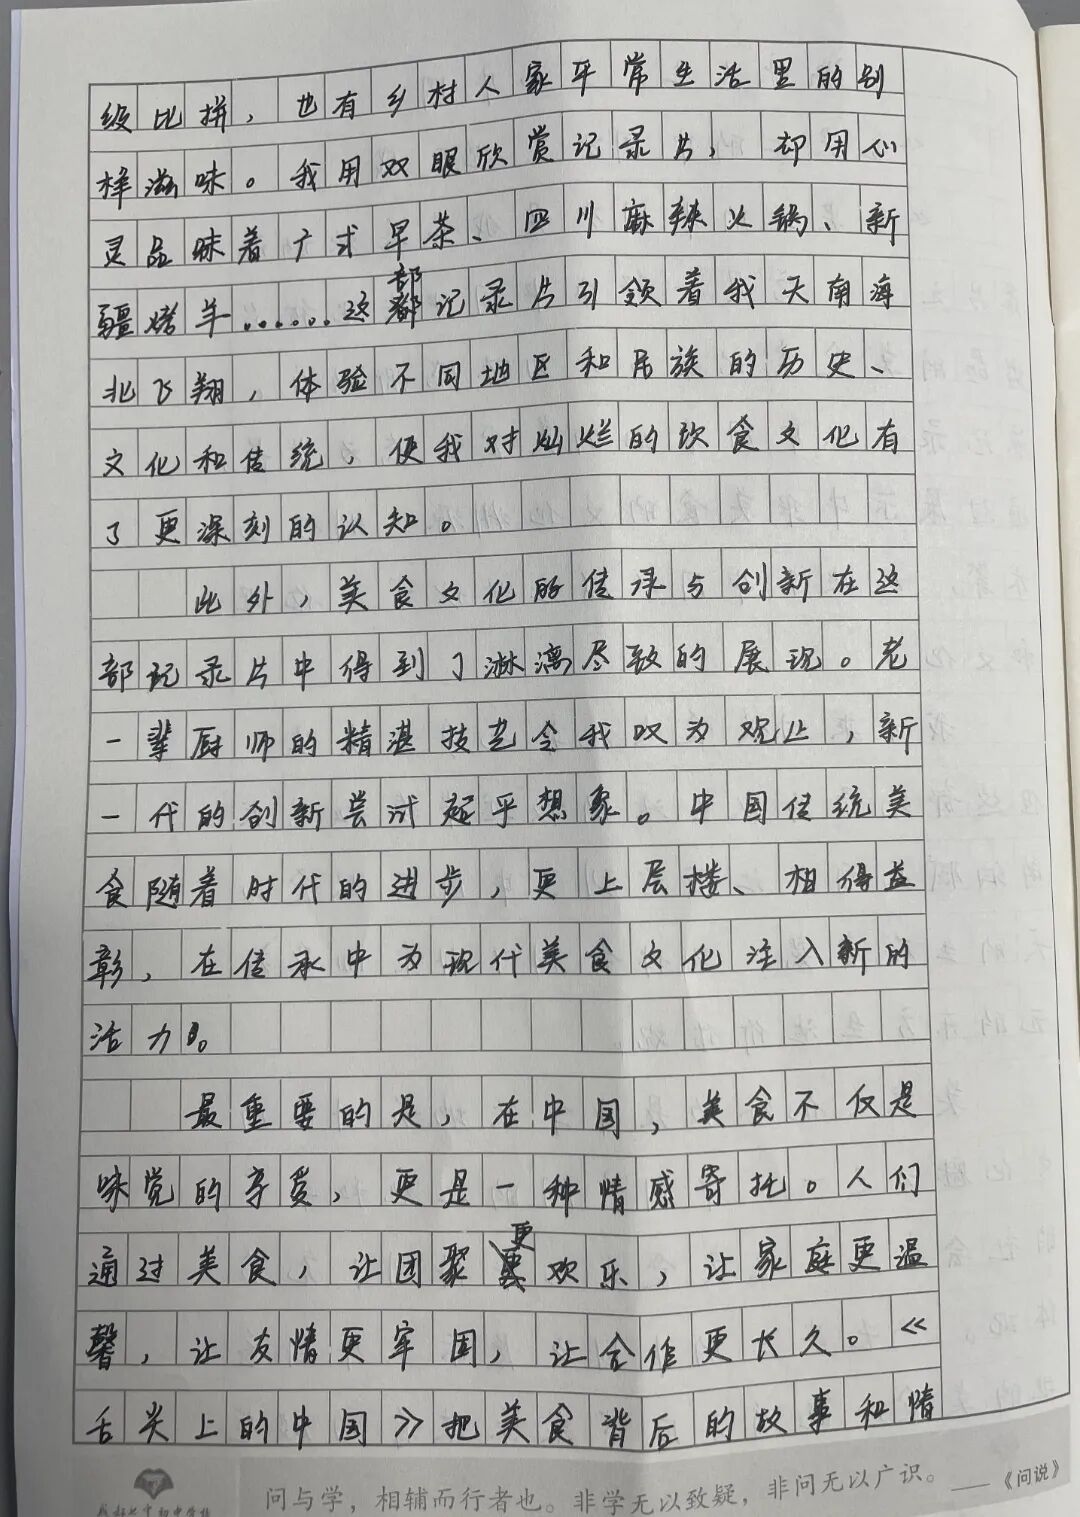 级比拼，也有乡村人家平常生活里的别
样滋味。我用双眼欣赏记录片，却用心
灵品味着广式早茶、四川麻辣火锅、新
疆烤羊……这部记录片引领着我天南海
北飞翔，体验不同地区和民族的历史、
文化和传统，使我对灿烂的饮食文化有
了更深刻的认知。
此外，美食文化的传承与创新在这
部记录片中得到了淋漓尽致的展现。老
一辈厨师的精湛技艺令我叹为观止，新
一代的创新尝试超乎想象。中国传统美
食随着时代的进步，更上层楼、相得益
彰，在传承中为现代美食文化注入新的
活力。
最重要的是，在中国，美食不仅是
味觉的享受，更是一种情感寄托。人们
通过美食，让团聚更欢乐，让家庭更温
馨，让友情更牢固，让合作更长久。《
舌尖上的中国》把美食背后的故事和情
问与学，相辅而行者也。非学无以致疑，非问无以广识。
——《问说》